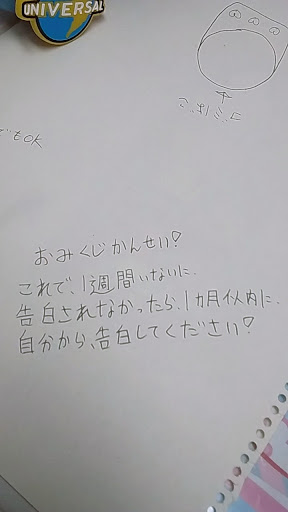 UNIVERSAL
でもOK
おみくじかんせい?
これで、1週間いないに、
告白されなかったら、1カ月以内に、
自分から、告白してください?